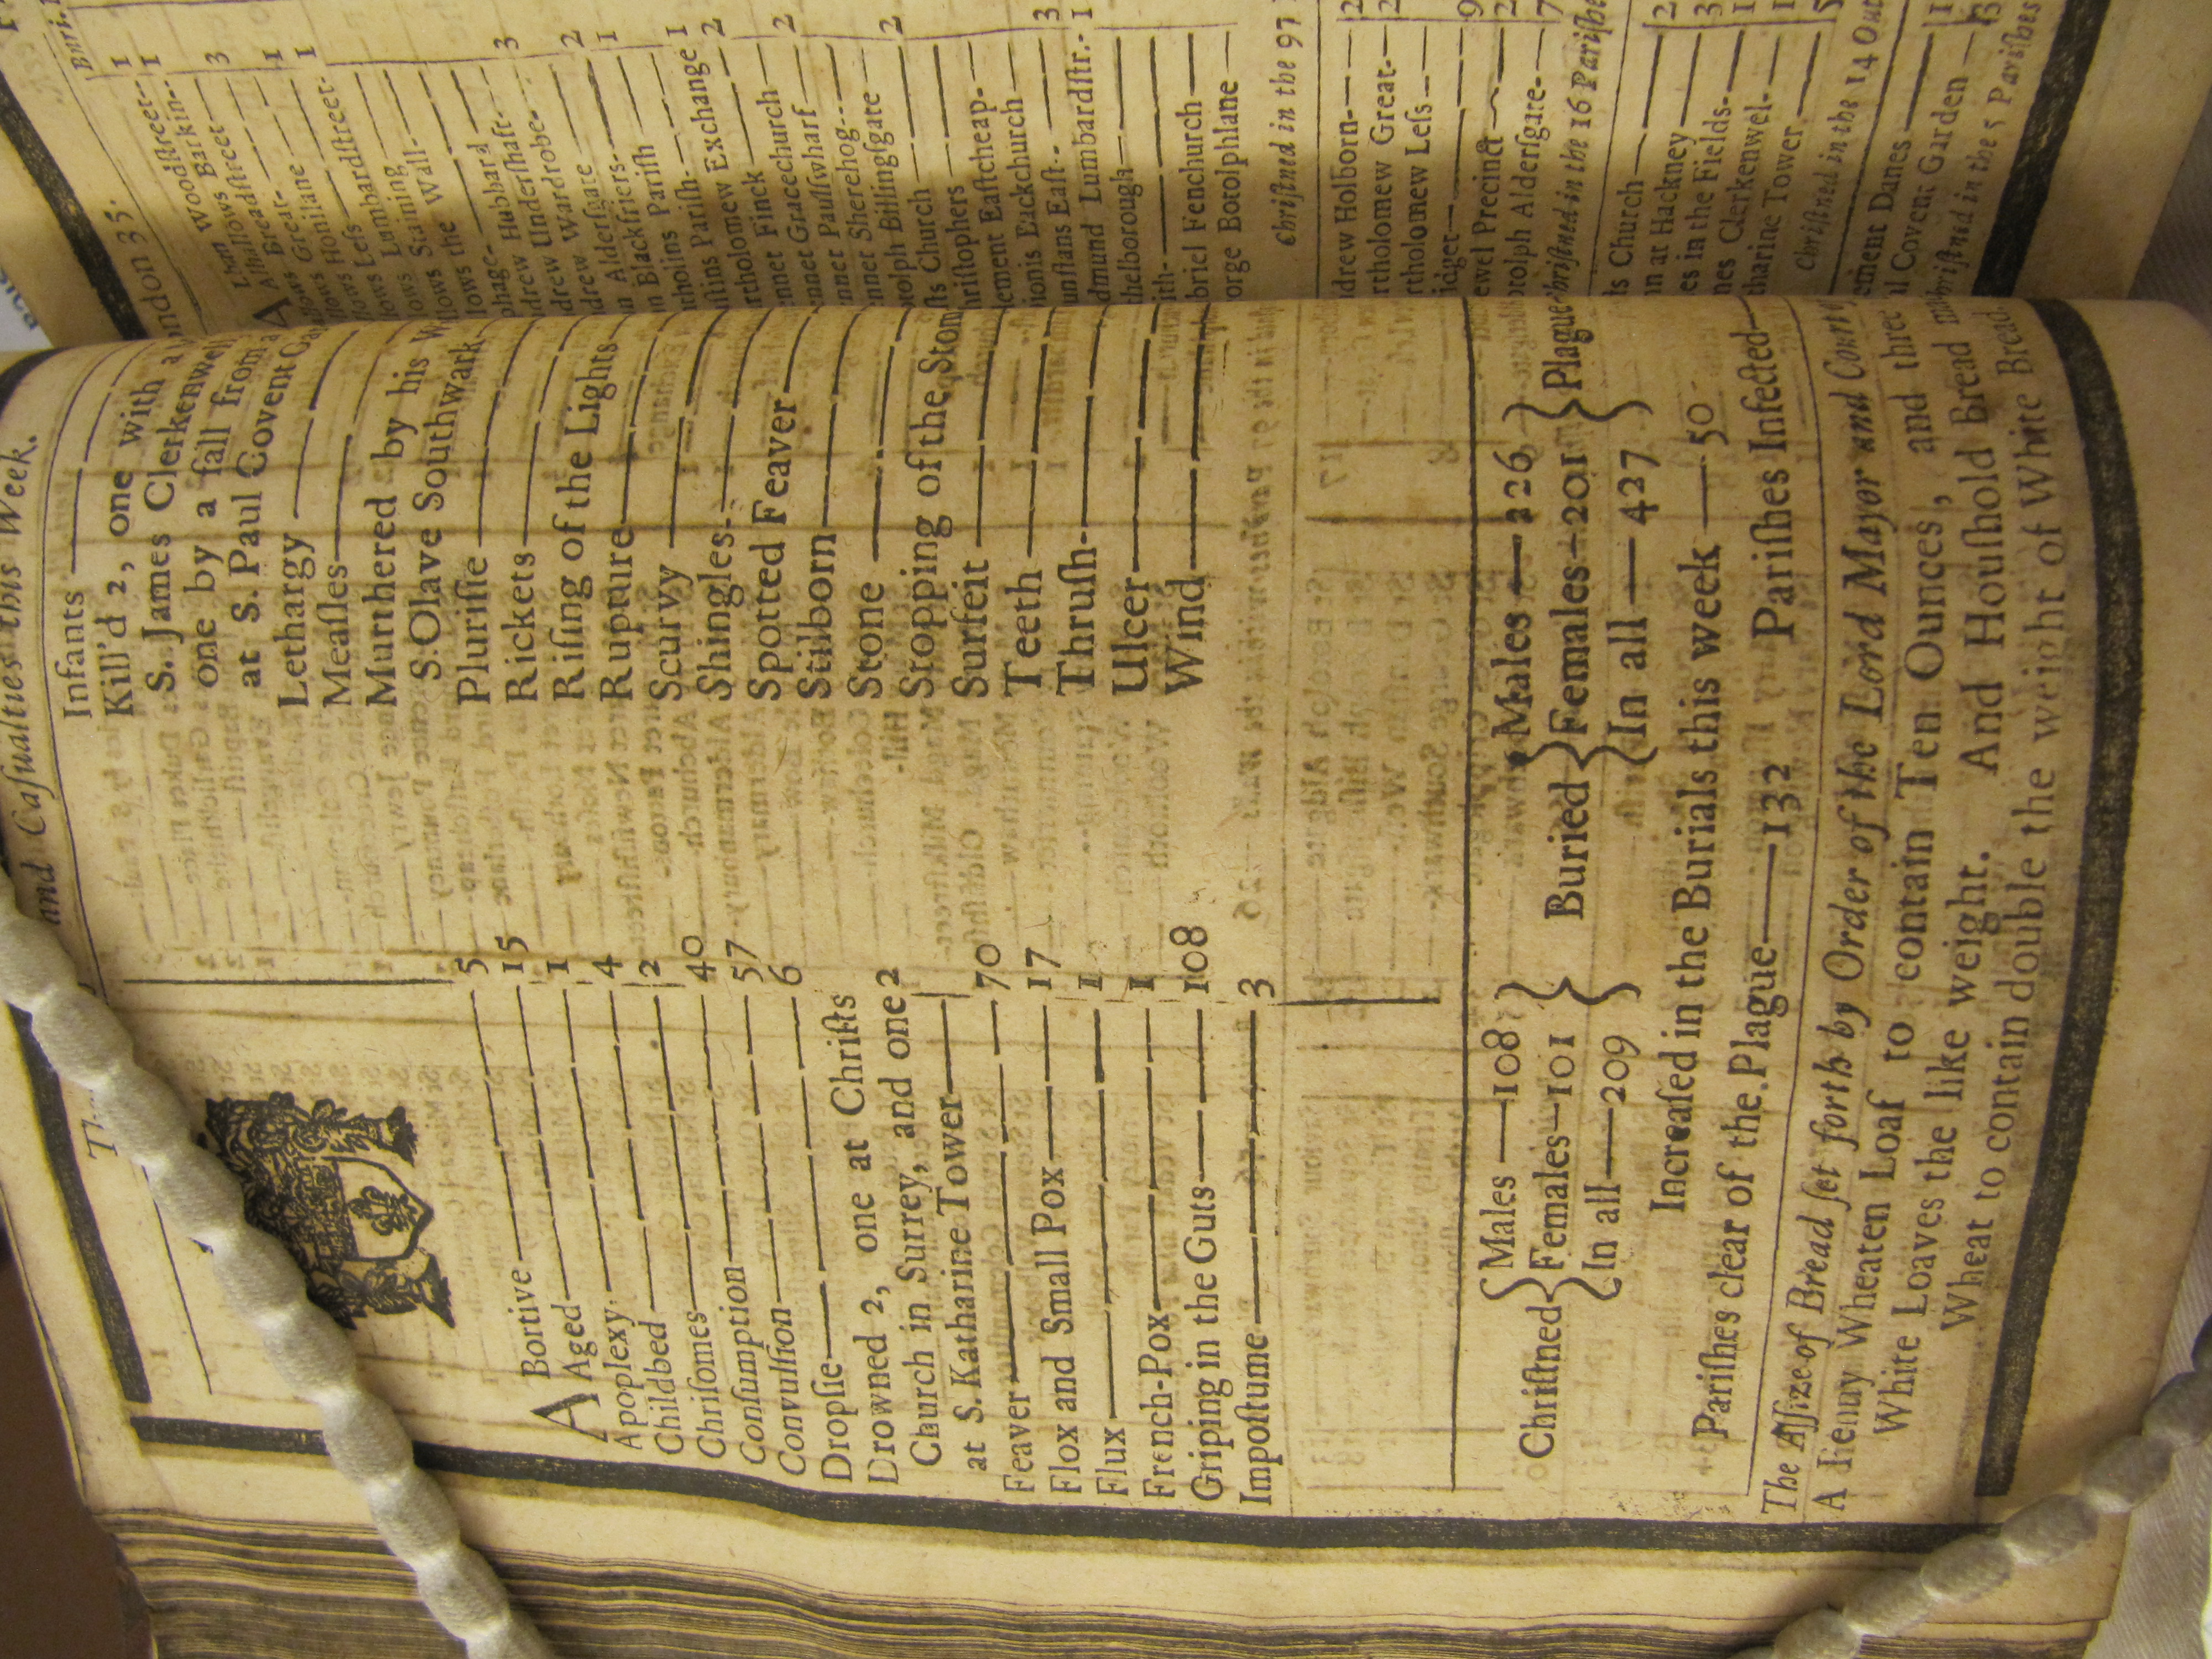 and Caſualties this Week.
Abortive 5
Aged 15
Apoplexy 1
Childbed 4
Chriſomes 2
Conſumption 40
Convulſion 57
Dropſie 6
Drowned 2, one at Chriſts
Church in Surrey, and one 2
at S. Katharine Tower
Feaver 70
Flox and Small Pox 17
Flux 1
French-Pox 1
Griping in the Guts 108
Impoſtume 3
Infants
Kill'd 2, one with a
S. James Clerkenwel
one by a fall from a
at S. Paul Covent Ga
Lethargy
Meaſles
Murthered by his W
S. Olave Southwark
Pluriſie
Rickets
Riſing of the Lights
Rupture
Scurvy
Shingles
Spotted Feaver
Stilborn
Stone
Stopping of the Stom
Surfeit
Teeth
Thruſh
Ulcer
Wind
Chriſtned { Males 108 Females 101 In all 209 }
Buried { Males 226 Females 201 In all 427 } Plague
Increaſed in the Burials this week 50
Pariſhes clear of the Plague 132 Pariſhes Infected
The Aſſize of Bread ſet forth by Order of the Lord Mayor and Court
A Penny Wheaten Loaf to contain Ten Ounces, and three
White Loaves the like weight. And Houſhold Bread
Wheat to contain double the weight of White Bread.
ondon 35.
Buri.
lban Woodſtreet 1
lhallows Barkin 1
Alhallows Breadſtreet 3
Great 1
lows Honilane 1
lows Leſs
lows Lumbardſtreet
lows Staining
lows the Wall
phage
drew Hubbard
drew Underſhaft 3
drew Wardrobe
n Alderſgate 2
n Blackfriers 1
tholins Pariſh
ſtins Pariſh 1
artholomew Exchange 2
nnet Finck
nnet Gracechurch 2
nnet Paulſwharf
nnet Sherehog
otolph Billingſgate 2
ſts Church
hriſtophers
lement Eaſtcheap
ionis Backchurch
unſtans Eaſt 3
dmund Lumbardſtr. 1
thelborough
ith
briel Fenchurch
orge Botolphlane
Chriſtned in the 97
drew Holborn 2
rtholomew Great 2
rtholomew Leſs
idget 9
ewel Precinct 2
otolph Alderſgate 7
hriſtned in the 16 Pariſhe
ts Church 2
n at Hackney 3
es in the Fields 1
nes Clerkenwel 1
tharine Tower 5
Chriſtned in the 14 Out
ement Danes 1
ul Covent Garden 13
hriſtned in the 5 Pariſhes